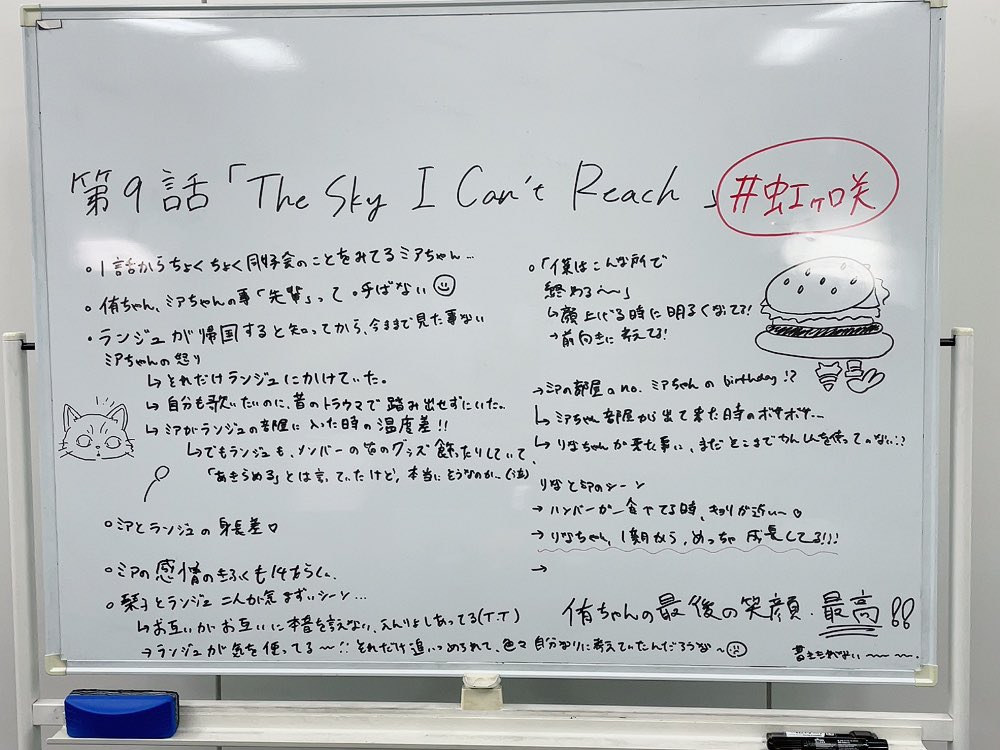 第9話「The Sky I Can't Reach」
#虹ヶ咲
○1話からちょくちょく同好会のことをみてるミアちゃん…
○侑ちゃん、ミアちゃんの事「先輩」って呼ばない
○ランジュが帰国すると知ってから、今まで見た事ない
ミアちゃんの怒り
↳それだけランジュにかけていた。
↳自分も歌いたいのに、昔のトラウマで踏み出せずにいた。
↳ミアがランジュの部屋に入った時の温度差!!
↳でもランジュも、メンバーの皆のグッズ飾ったりしていて、
「あきらめる」とは言っていたけど、本当にそうなのか…(泣)
○ミアとランジュの身長差♡
○ミアの感情の
○栞子とランジュ 二人が気まずいシーン…
↳お互いがお互いに本音を言えない、えんりょしあってる(T.T)
→ランジュが気を使ってる〜!!それだけ追いつめられて、色々自分なりに考えていたんだろうな〜
○「僕はこんな所で
終める〜」
↳顔上げる時に明るくなってる!
→前向きに考えてる!
→ミアの部屋のno. ミアちゃんのbirthday!?
↳ミアちゃん部屋から出て来た時のボサボサ…
↳りなちゃんが来た事い、まだどこまでかんぴを使ってのない!?
りなとミアのシーン
→ハンバーガー食べてる時、キョリが近い〜♡
→りなちゃん、1期から、めっちゃ成長してる!!!
→
侑ちゃんの最後の笑顔、最高!!
書ききれない〜〜〜.